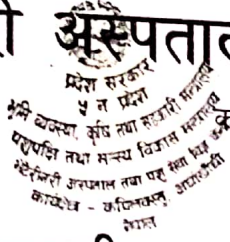 अस्पताल
प्रदेश सरकार
५ नं प्रदेश
भूमि व्यवस्था, कृषि तथा सहकारी मन्त्रालय
पशुपंक्षि तथा मत्स्य विकास
भेटेरीनरी अस्पताल तथा पशु सेवा
कार्यक्षेत्र - कपिलवस्तु, अर्घाखाँची
नेपाल